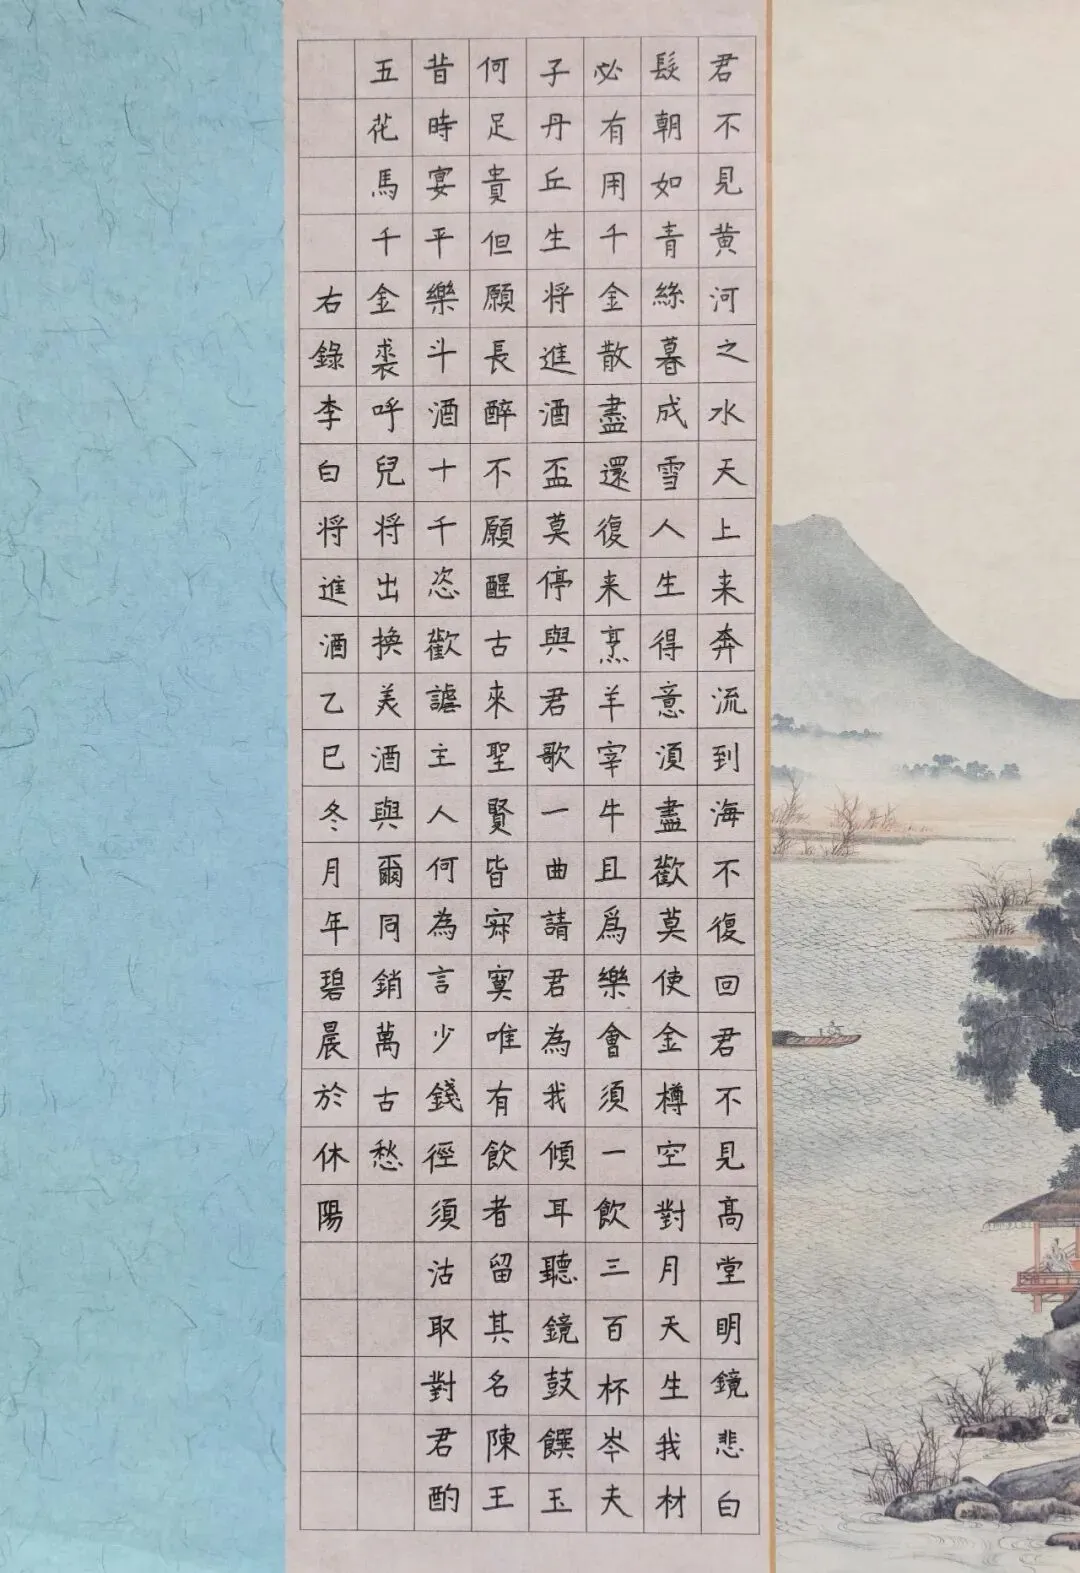 君不見黄河之水天上来奔流到海不復回君不見高堂明鏡悲白
髮朝如青絲暮成雪人生得意須盡歡莫使金樽空對月天生我材
必有用千金散盡還復来烹羊宰牛且爲樂會須一飲三百杯岑夫
子丹丘生将進酒盃莫停與君歌一曲請君為我傾耳聽鏡鼓饌玉
何足貴但願長醉不願醒古來聖賢皆寂寞唯有飲者留其名陳王
昔時宴平樂斗酒十千恣歡謔主人何為言少錢徑須沽取對君酌
五花馬千金裘呼兒将出換美酒與爾同銷萬古愁
右錄李白将進酒乙巳冬月年碧晨於休陽